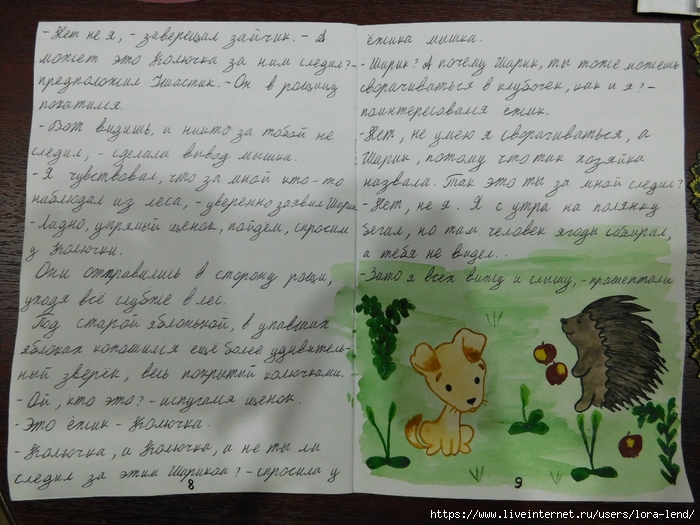 - Нет не я, - заверещал зайчик. - А
может это Колючка за ним следил? -
предположил Ушастик. - Он в рощицу
покатился.
- Вот видишь, и никто за тобой не
следил, - сделала вывод мышка.
- Я чувствовал, что за мной кто-то
наблюдал из леса, - уверенно заявил Шарик
- Ладно, упрямый щенок, пойдём, спросим
у Колючки.
Они отправились в сторону рощи,
уходя всё глубже в лес.
Под старой яблонькой, в упавших
яблоках копошился ещё более удивитель-
ный зверёк, весь покрытый колючками.
- Ой, кто это? - испугался щенок.
- Это ёжик - Колючка.
- Колючка, а Колючка, а не ты ли
следил за этим Шариком? - спросила у
8
ёжика мышка.
- Шарик? А почему Шарик, ты тоже можешь
сворачиваться в клубочек, как и я? -
поинтересовался ёжик.
- Нет, не умею я сворачиваться, а
Шарик, потому что так хозяйка
назвала. Так это ты за мной следил?
- Нет, не я. Я с утра на полянку
бегал, но там человек ягоды собирал,
а тебя не видел..
- Зато я всех вижу и слышу, - прошептали
9
https://www.liveinternet.ru/users/lora-lend/